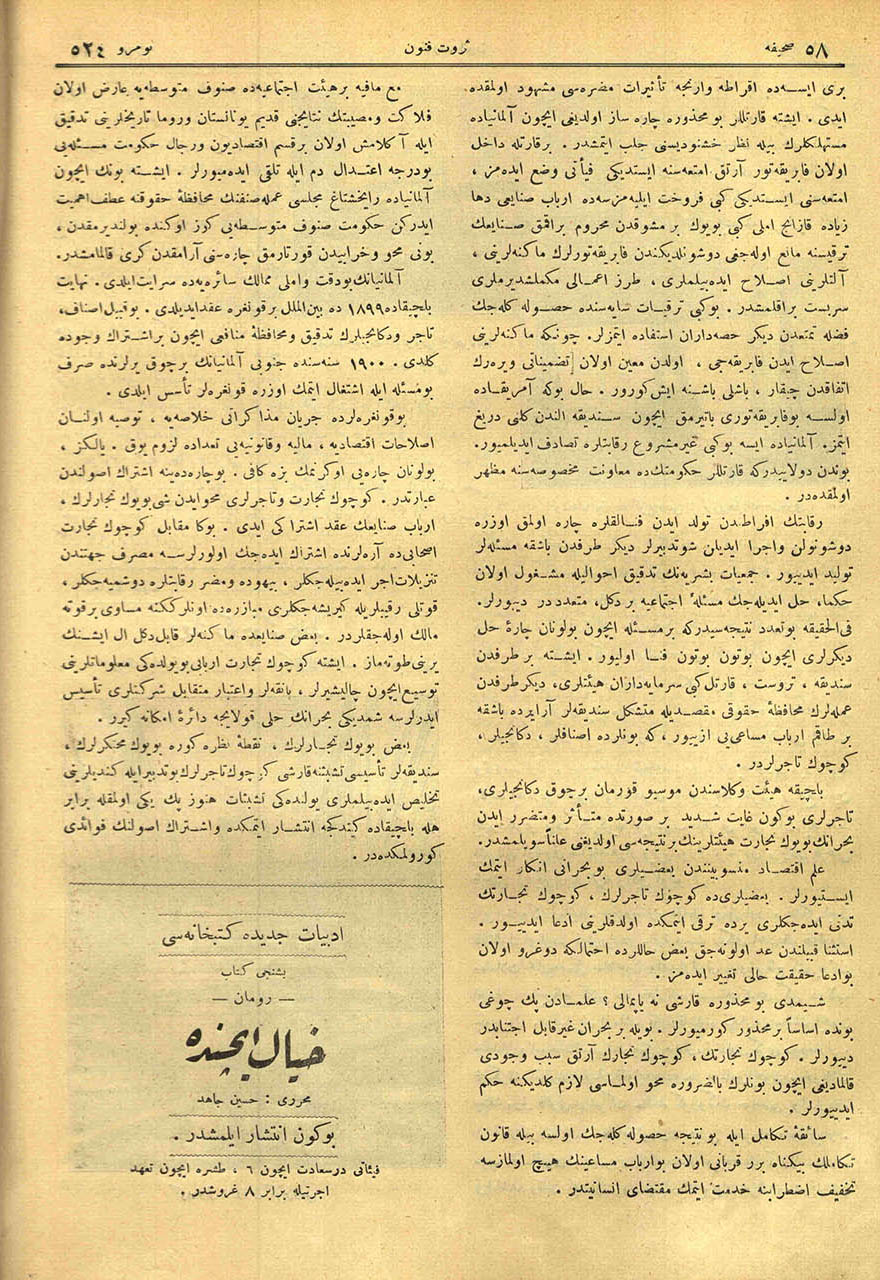 صحیفه ٥٨
ثروت فنون
نومرو ٥٢٤
بری ایسه‌ده افراطه وارنجه تأثیرات مضره‌سی مشهود اولمقده
ایدی . ایشته قارتللر بو محذوره چاره ساز اولدیغی ایچون آلمانیاده
مستهلكلرك بیله نظر خشنودیسنی جلب ایتمشدر . برقارتله داخل
اولان فابریقه‌تور آرتق امتعه‌سنه ایستدیکی فیأتی وضع ایده‌مز ،
امتعه‌سنی ایستدیکی کبی فروخت ایلیه‌مزسه‌ده ارباب صنایعی دها
زیاده قازانج املی کبی بویوك بر مشوقدن محروم براقمق صنایعك
ترقیسنه مانع اوله‌جغی دوشونلدیکندن فابریقه‌تورلرك ماکنه‌لرینی ،
آلتلرینی اصلاح ایده‌بیلملری ، طرز اعمالی مکملشدیرملری
سربست براقلمشدر . بوکبی ترقیات سایه‌سنده حصوله کله‌جك
فضله تمتعدن دیکر حصه‌داران استفاده ایتمزلر. چونکه ماکنه‌لرینی
اصلاح ایدن فابریقه‌جی ، اولدن معین اولان تضمیناتی ویره‌رك
اتفاقدن چیقار ، باشلی باشنه ایش‌کورور . حال بوکه آمریقاده
اولسه بوفابریقه‌توری باتیرمق ایچون سندیقه الندن کلنی دریغ
ایتمز. آلمانیاده ایسه بوکبی غیرمشروع رقابتلره تصادف ایدیلمیور.
بوندن دولاییدرکه قارتللر حکومتك‌ده معاونت مخصوصه‌سنه مظهر
اولمقده‌در .
رقابتك افراطندن تولد ایدن فنالقلره چاره اولمق اوزره
دوشونولن واجرا ایدیلن شوتدبیرلر دیکر طرفدن باشقه مسئله‌لر
تولید ایدییور . جمعیات بشریه‌نك تدقیق احوالیله مشغول اولان
حکما، حل ایدیله‌جك مسئلهٔ اجتماعیه بر دکل، متعدددر دیبورلر.
فی‌الحقیقه بوتعدد نتیجه‌سیدرکه برمسئله ایچون بولونان چارهٔ حل
دیکرلری ایچون بوتون بوتون فنا اولیور. ایشته بر طرفدن
سندیقه ، تروست ، قارتل کبی سرمایه‌داران هیئتلری، دیکر طرفدن
عمله‌لرك محافظهٔ حقوقی مقصدیله متشکل سندیقه‌لر آرایرده باشقه
بر طاقم ارباب مساعی‌یی ازییور ، که بونلرده اصنافلر ، دکانجیلر ،
کوچوك تاجرلردر .
بلچیقه هیئت وکلاسندن موسیو قورمان برچوق دکانجیلری،
تاجرلری بوکون غایت شدید بر صورتده متأثر ومتضرر ایدن
بحرانك بویوك تجارت هیئتلرینك برنتیجه‌سی اولدیغنی علناً سویلمشدر.
علم اقتصاد منسوبیندن بعضیلری بو بحرانی انکار ایتمك
ایستیورلر . بعضیلری‌ده کوچوك تاجرلرك ، کوچوك تجارتك
تدنی ایده‌جکلری یرده ترقی ایتمکده اولدقلرینی ادعا ایدییور .
استثنا قبیلندن عد اولونه‌جق بعض حاللرده احتمالکه دوغرو اولان
بوادعا حقیقت حالی تغییر ایده‌مز .
شیمدی بو محذوره قارشی نه یاپمالی ؟ علمادن پك چوغی
بونده اساساً بر محذور کورمیورلر . بویله بر بحران غیرقابل اجتنابدر
دیبورلر . کوچوك تجارتك، کوچوك تجارك آرتق سبب وجودی
قالمادیغی ایچون بونلرك بالضروره محو اولماسی لازم کلدیکنه حکم
ایدییورلر .
سائقهٔ تکامل ایله بونتیجه حصوله کله‌جك اولسه بیله قانون
تکاملك بیکناه برر قربانی اولان بوارباب مساعینك هیچ اولمازسه
تخفیف اضطرابنه خدمت ایتمك مقتضای انسانیتدر .
مع مافیه برهیئت اجتماعیه‌ده صنوف متوسطه‌یه عارض اولان
فلاکت ومصیبتك نتایجنی قدیم یونانستان وروما تاریخلرینی تدقیق
ایله آکلامش اولان برقسم اقتصادیون ورجال حکومت مسئله‌یی
بودرجه اعتدال دم ایله تلقی ایده‌میورلر . ایشته بونك ایچون
آلمانیاده رایخشتاغ مجلسی عمله‌صنفنك محافظهٔ حقوقنه عطف‌اهمیت
ایدرکن حکومت صنوف متوسطه‌یی کوز اوکنده بولندیرمقدن،
بونی محو وخرابیدن قورتارمق چاره‌سنی آرامقدن کری قالمامشدر.
آلمانیانك‌بودقت واملی ممالك سائره‌یه‌ده سرایت‌ایلدی. نهایت
بلچیقاده ١٨٩٩ ده بین‌الملل برقونغره عقد ایدیلدی . بوقبیل‌اصناف،
تاجر ودکانجیلرك تدقیق ومحافظهٔ منافعی ایچون براشتراك وجوده
کلدی . ١٩٠٠ سنه‌سنده جنوبی آلمانیانك برچوق یرلرنده صرف
بومسئله ایله اشتغال ایتمك اوزره قونغره‌لر تأسس ایلدی .
بوقونغره‌لرده جریان مذاکراتی خلاصه‌یه ، توصیه اولنان
اصلاحات اقتصادیه ، مالیه وقانونیه‌یی تعداده لزوم یوق . یالکز ،
بولونان چاره‌یی اوکرنمك بزه کافی . بوچاره‌ده‌ینه اشتراك اصولندن
عبارتدر . کوچوك تجارت وتاجرلری محوایدن شی‌بویوك تجارلرك ،
ارباب صنایعك عقد اشتراکی ایدی . بوکا مقابل کوچوك تجارت
اصحابی‌ده آره‌لرنده اشتراك ایده‌جك اولورلرسه مصرف جهتندن
تنزیلات‌اجر ایده‌بیله‌جکلر ، بیهوده ومضر رقابتلره دوشمیه‌جکلر ،
قوتلی رقیبلریله کیریشه‌جکلری مبارزه‌ده اونلرککنه مساوی برقوته
مالك اوله‌جقلردر . بعض صنایعده ماکنه‌لر قابل‌دکل ال ایشنك
یرینی طوته‌ماز . ایشته کوچوك تجارت اربابی بویولده‌کی معلوماتلرینی
توسیع ایچون چالیشیرلر ، بانقه‌لر واعتبار متقابل شرکتلری تأسیس
ایدرلرسه شمدیکی بحرانك حلی قولایجه دائرهٔ امکانه کیرر .
بعض بویوك تجارلرك ، نقطهٔ نظره کوره بویوك محتکرلرك ،
سندیقه‌لر تأسیسی تشبثنه قارشی کوچوك تاجرلرك بوتدبیر ایله کندیلرینی
تخلیص ایده‌بیلملری یولنده‌کی تشبثات هنوز پك یکی اولمقله برابر
هله بلچیقاده کیتدکجه انتشار ایتمکده واشتراك اصولنك فوائدی
کورولمکده‌در .
ادبیات جدیده کتبخانه‌سی
بشنجی کتاب
— رومان —
خیال ایچنده
محرری : حسین جاهد
بوکون انتشار ایلمشدر .
فیئاتی درسعادت ایچون ٦ ، طشره ایچون تعهد
اجرتیله برابر ٨ غروشدر .